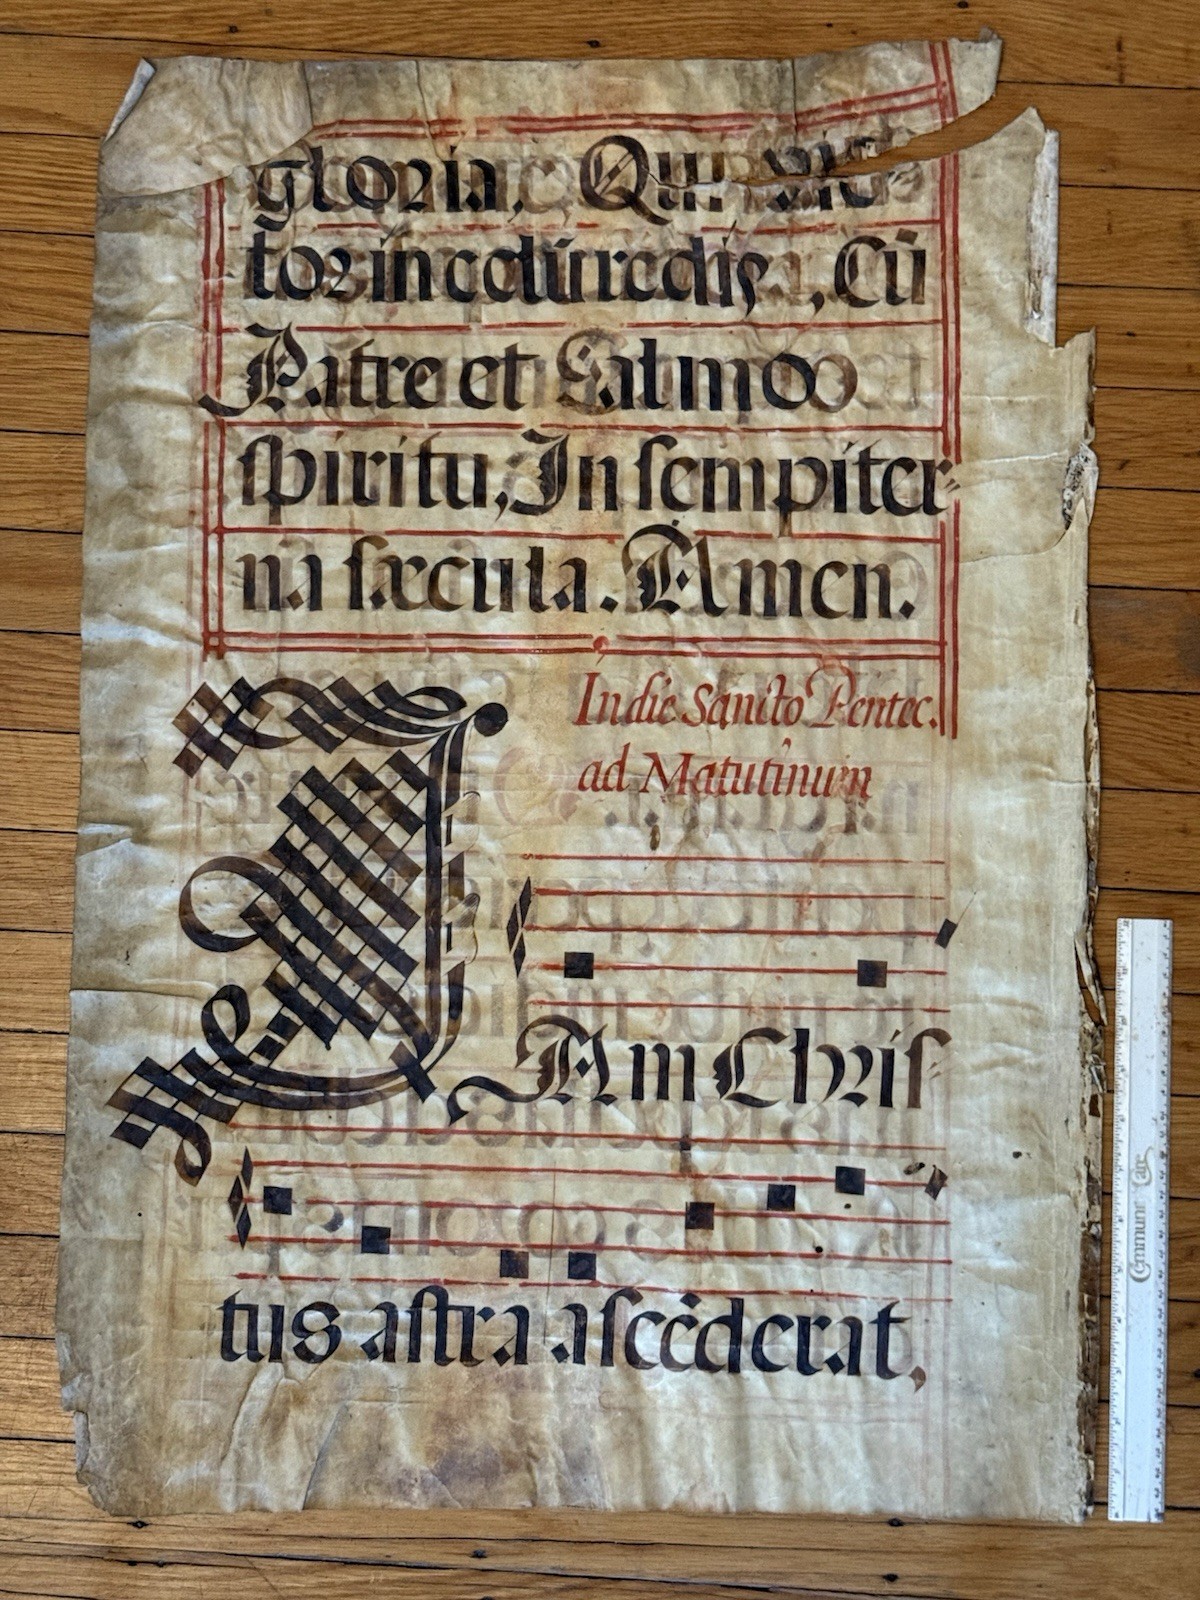 gloria, Qui vic
tor in cœlũ redis, Cũ
Patre et Salmo
spiritu, In sempiter-
na sæcula. Amen.
In die Sancto Pentec.
ad Matutinum
IAm Chris-
tus astra ascẽderat,